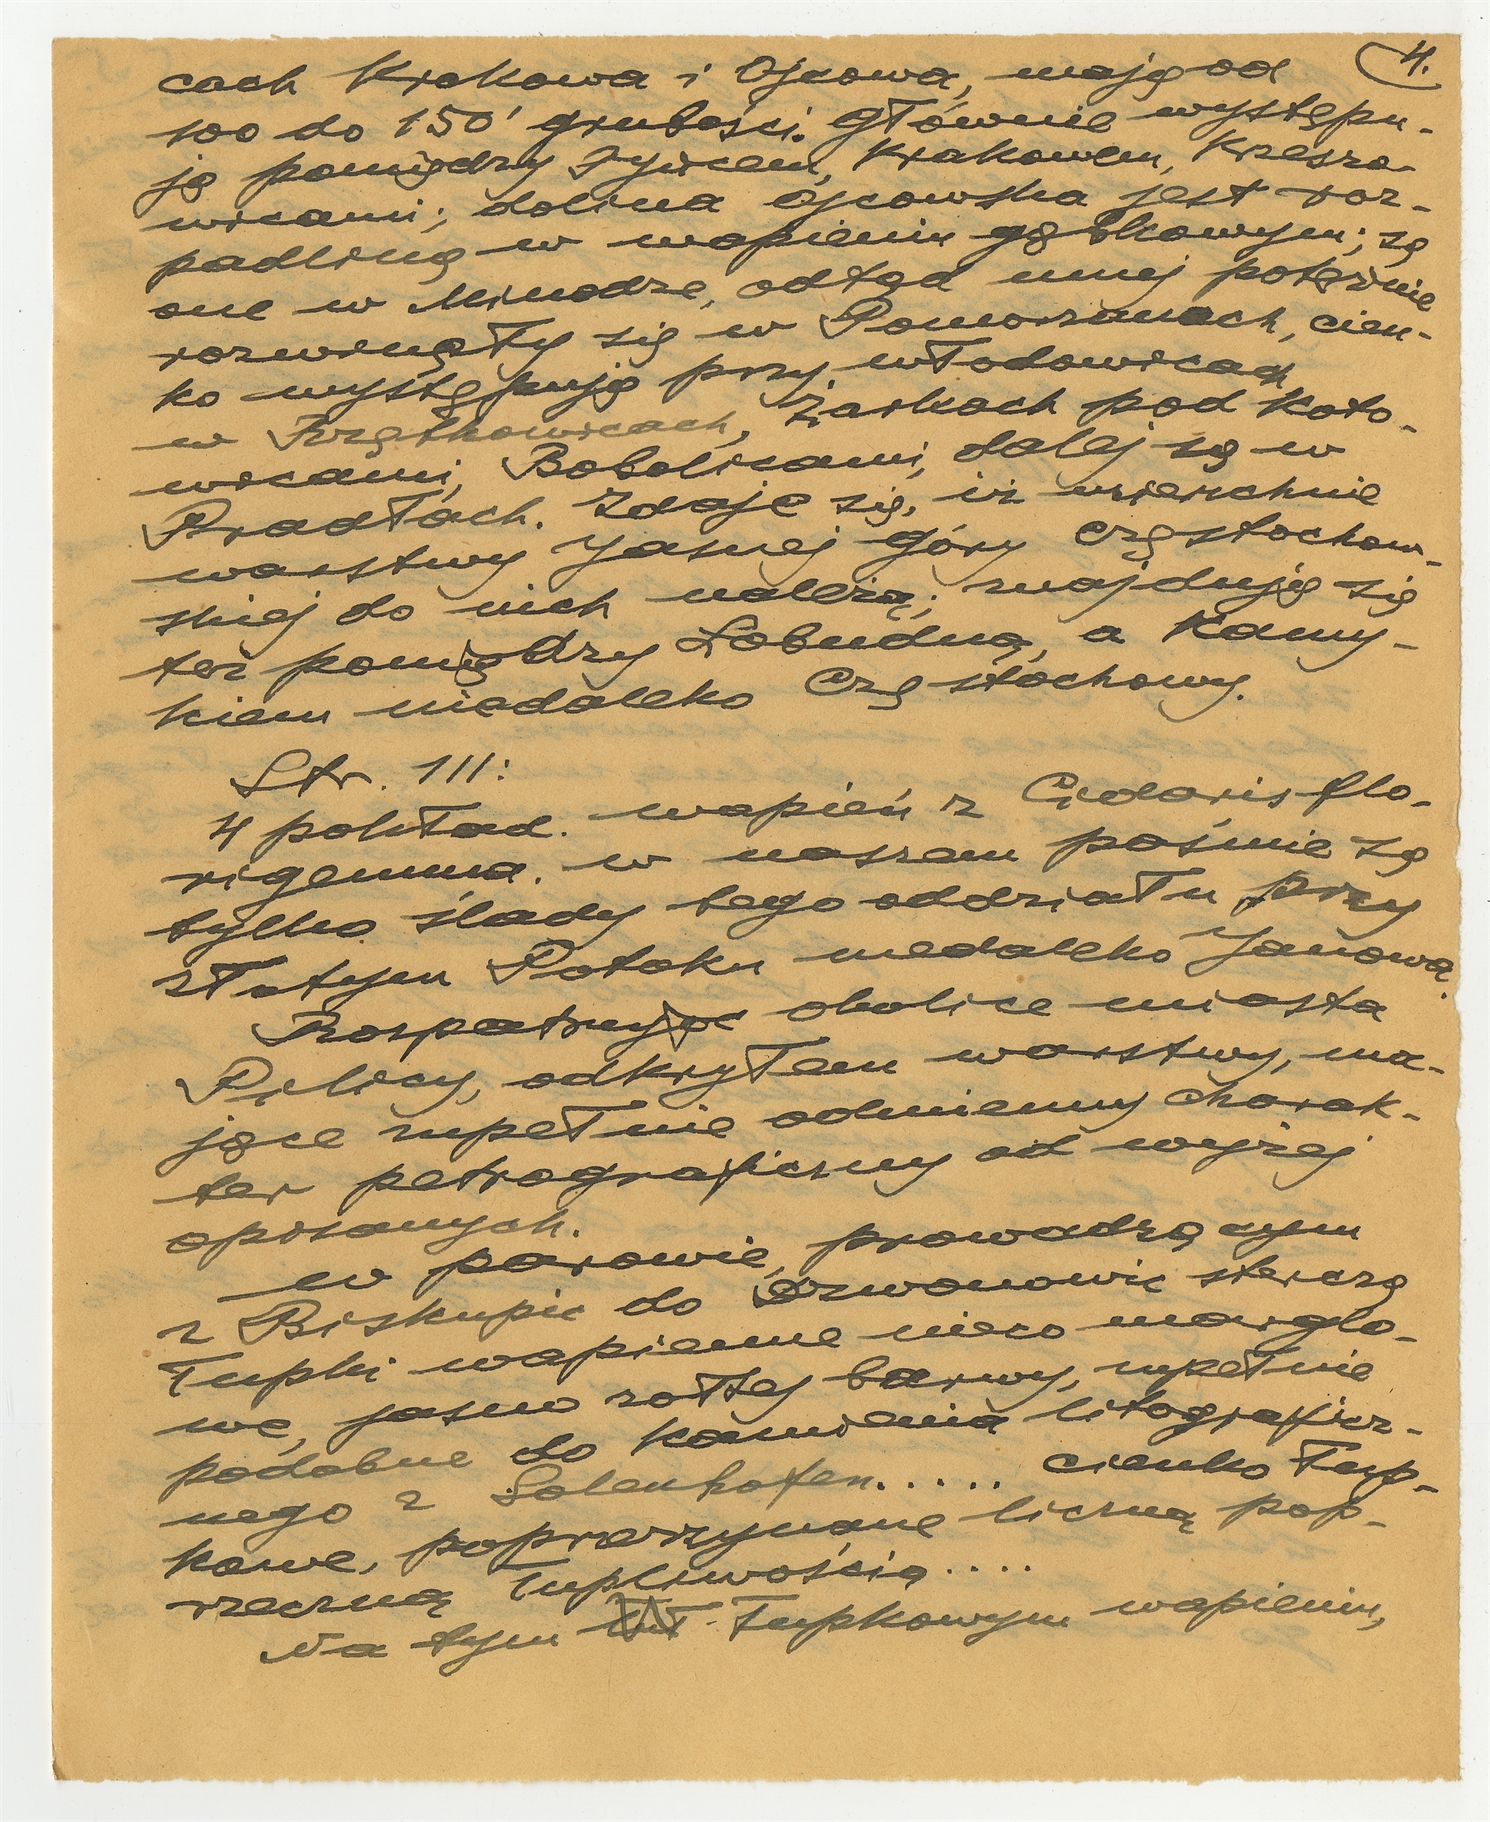 4.
cach Krakowa i Ojcowa, mają od
100 do 150' grubości. Głównie występu-
ją pomiędzy Tyńcem, Krakowem, Krzeszo-
wicami; dolina Ojcowska jest roz-
padliną w wapieniu gąbkowym; są
one w Minodze, odtąd mniej potężnie
rozwinęły się w Pomorzanach, cien-
ko występują przy Włodowicach
w Rzędkowicach, Żarkach pod Koto-
wicami, Bobolicami, dalej są w
Pradłach. Zdaje się, iż wierzchnie
warstwy Jasnej Góry Częstochow-
skiej do nich należą; znajdują się
też pomiędzy Lobudną, a Kamy-
kiem niedaleko Częstochowy.
Str. 111:
4 pokład. wapień z Cidaris flo-
rigemma. w naszem paśmie są
tylko ślady tego oddziału przy
Złotym Potoku niedaleko Janowa.
Rozpatrując okolice miasta
Pilicy, odkryłem warstwy, ma-
jące zupełnie odmienny charak-
ter petrograficzny od wyżej
opisanych.
w parowie, prowadzącym
z Biskupic do Dzwonowic sterczą
łupki wapienne nieco marglo-
we, jasno żółtej barwy, zupełnie
podobne do kamienia litograficz-
nego z Solenhofen..... cienko łup-
kowe, poprzerzynane liczną pop-
rzeczną łupliwością....
Na tym łupkowym wapieniu,